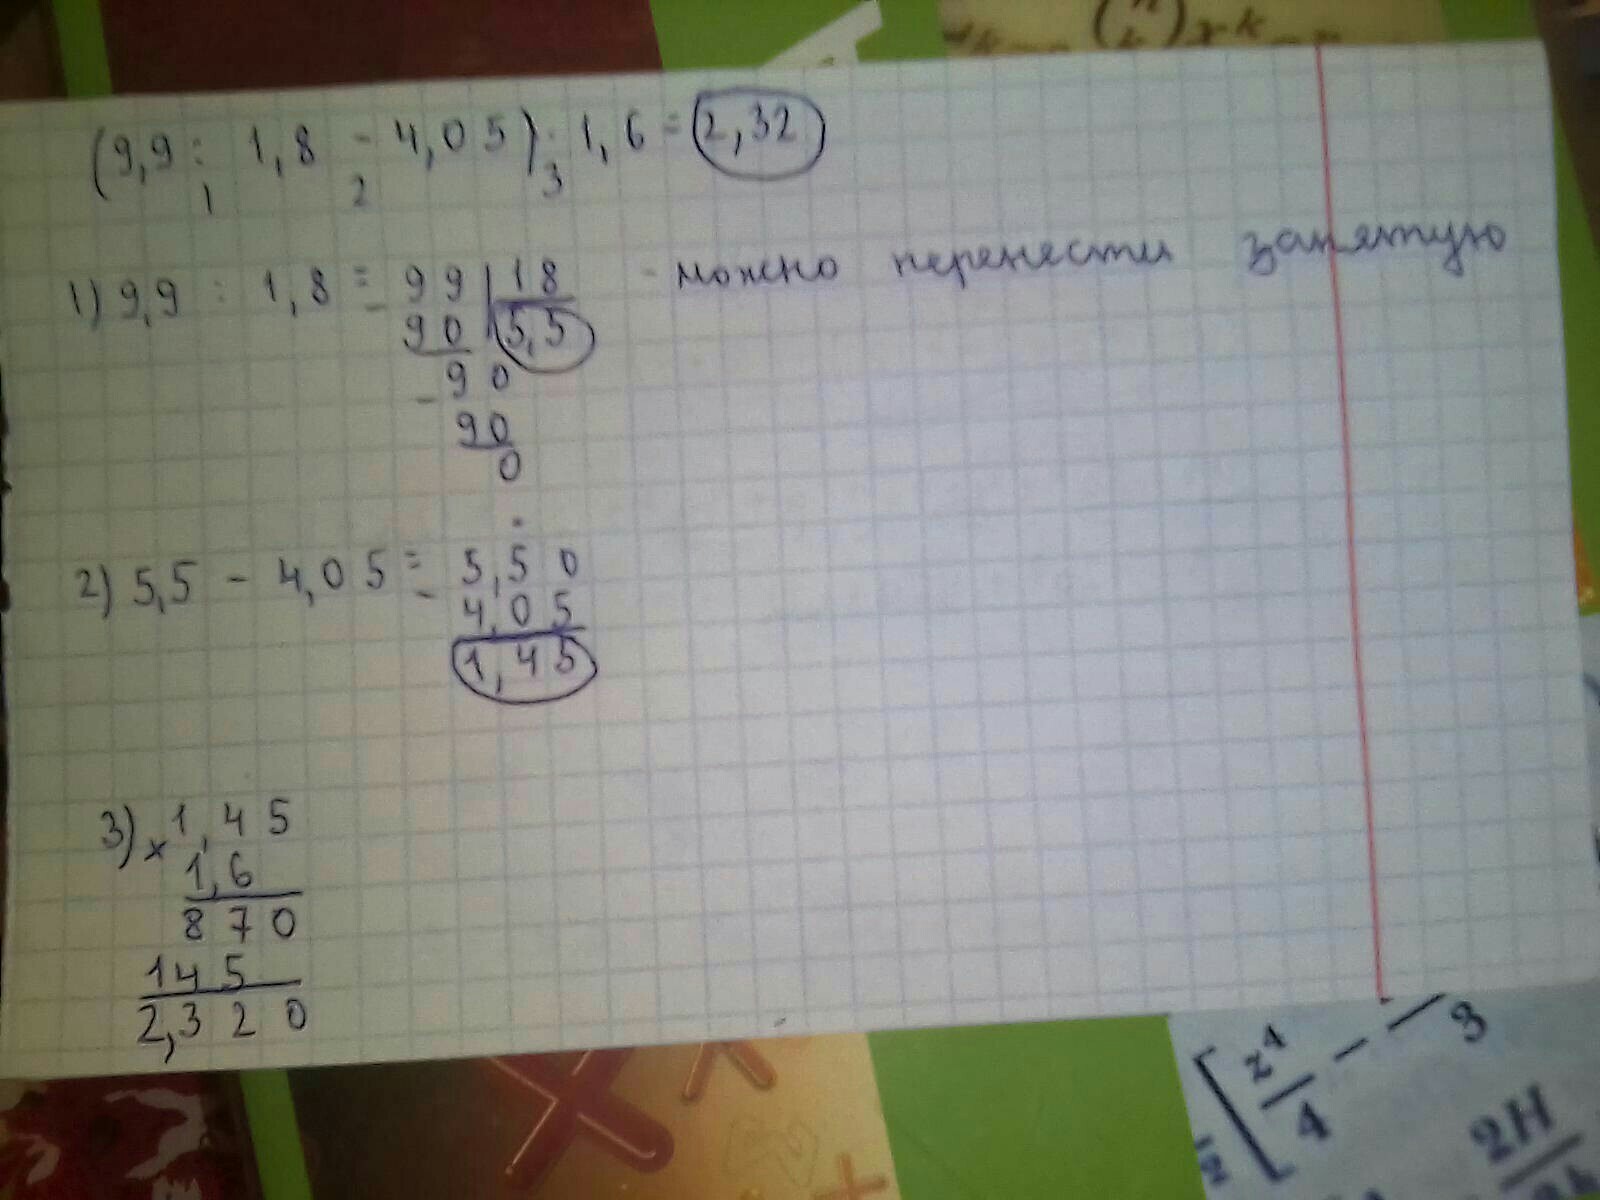 (9,9 : 1,8 - 4,05) · 1,6 = 2,32
1 2 3
1) 9,9 : 1,8 = 99 18 - можно перенести запятую
90 5,5
- 90
90
0
2) 5,5 - 4,05 = 5,50
- 4,05
1,45
3) × 1,45
1,6
870
145
2,320
z⁴
4
3
2H